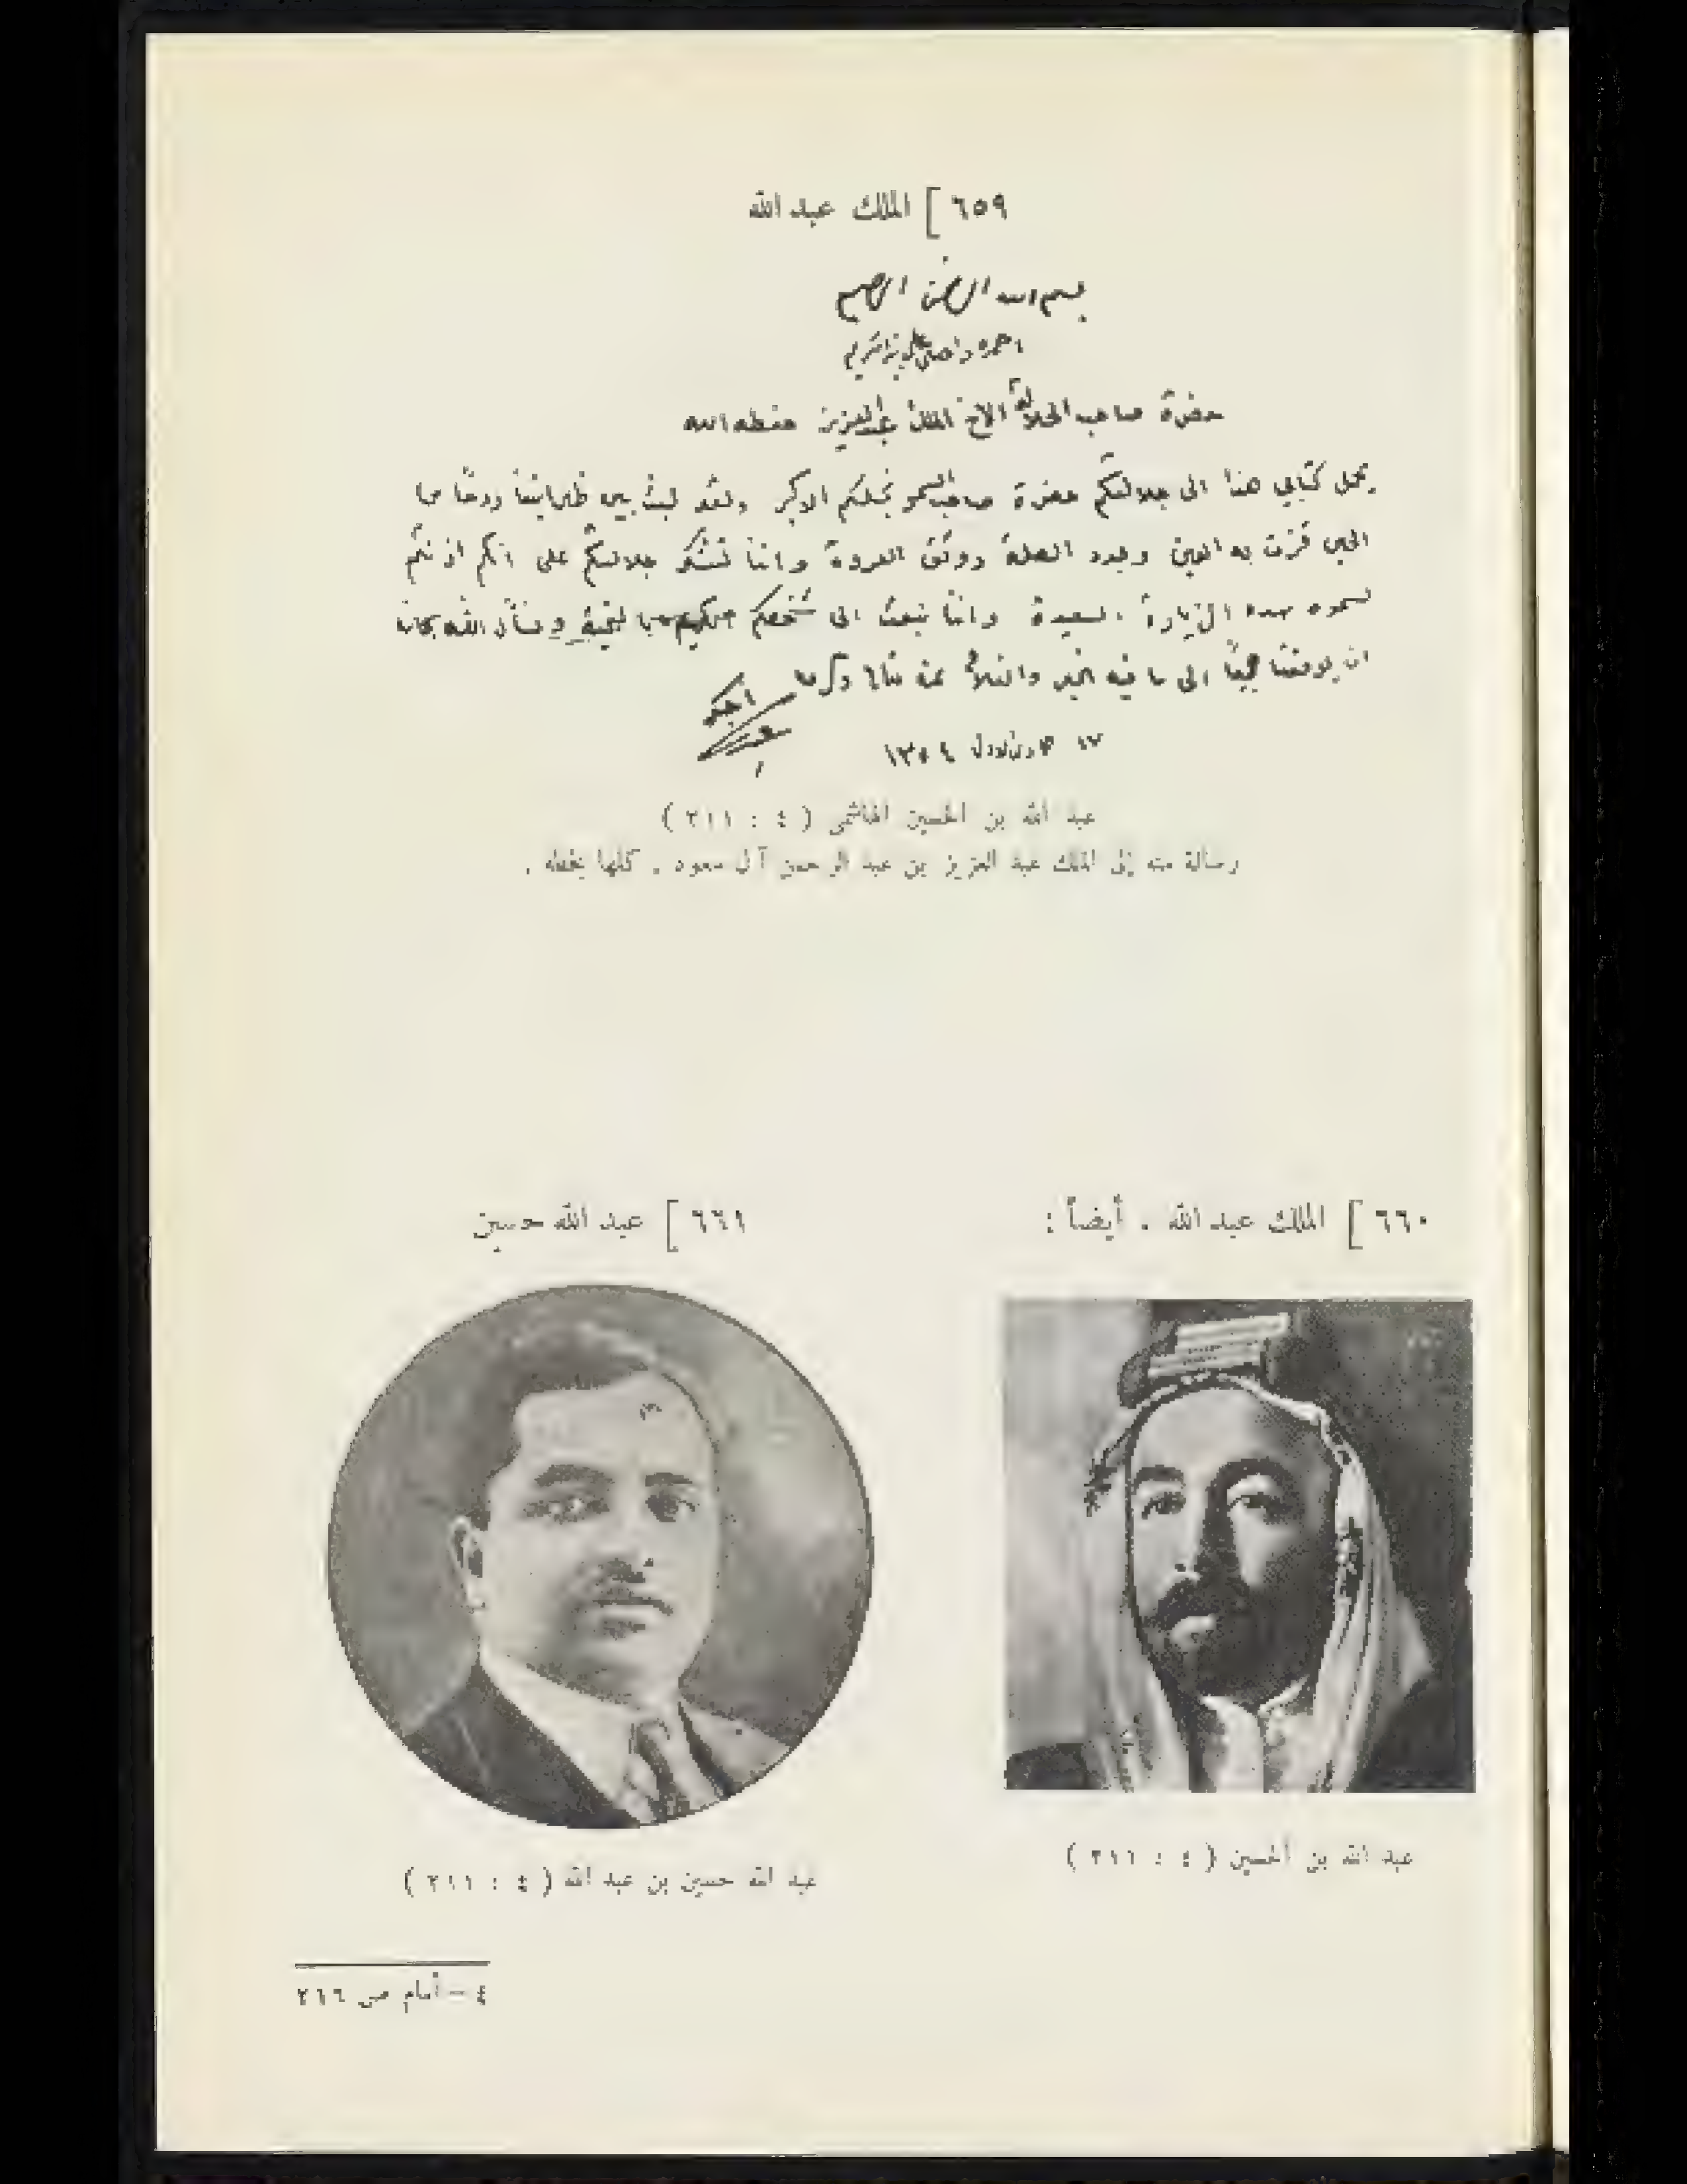 ٦٥٩ [ الملك عبد الله
بسم الله الرحمن الرحيم
احمده واصلي على نبيه الكريم
حضرة صاحب الجلالة الاخ الملك عبد العزيز حفظه الله
يحمل كتابي هذا الى جلالتكم حضرة صاحب السمو نجلكم الاكبر ولقد لبث بين ظهرانينا ردحا من
الحين قرت به العين وجدد الصلة ووثق العروة واننا نشكر جلالتكم على انكم اذنتم
لسموه بهذه الزيارة السعيدة واننا نبعث الى شخصكم الكريم التحية ونسأل الله سبحانه
ان يوفقنا جميعا الى ما فيه الخير والسلام
اخوكم
عبد الله
١٧ جمادى الاولى ١٣٥٤
عبد الله بن الحسين الهاشمي ( ٤ : ٢١١ )
رسالة منه إلى الملك عبد العزيز بن عبد الرحمن آل سعود . كلها بخطه .
٦٦٠ [ الملك عبد الله . أيضاً :
٦٦١ [ عبد الله حسين
عبد الله بن الحسين ( ٤ : ٢١١ )
عبد الله حسين بن عبد الله ( ٤ : ٢١١ )
٤ – أمام ص ٢٦٦